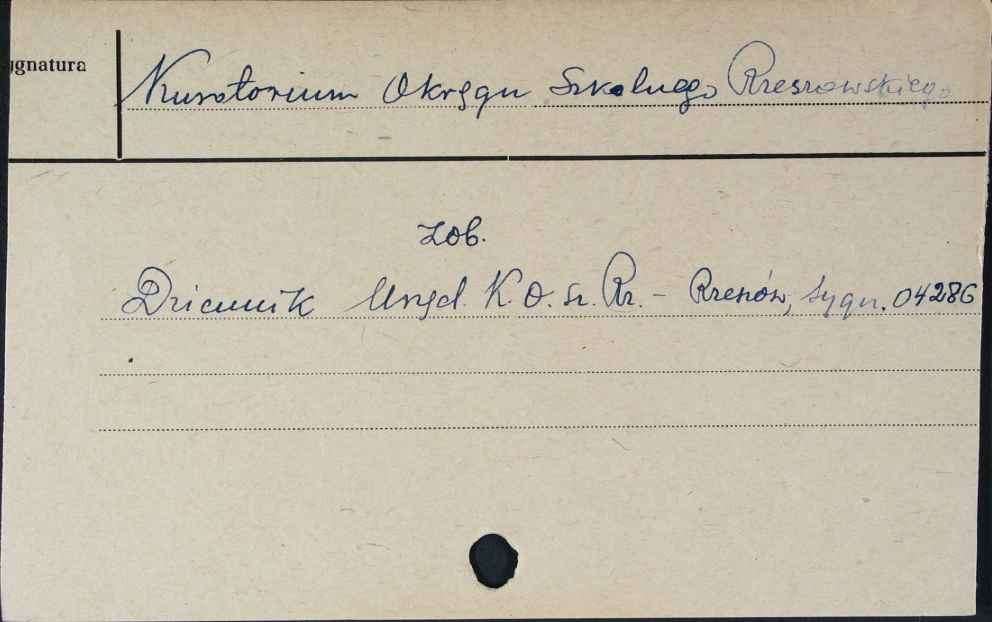 ygnatura
Kuratorium Okręgu Szkolnego Rzeszowskiego
Zob.
Dziennik Urzęd. K. O. Sz. Rz. – Rzeszów, sygn. 04286